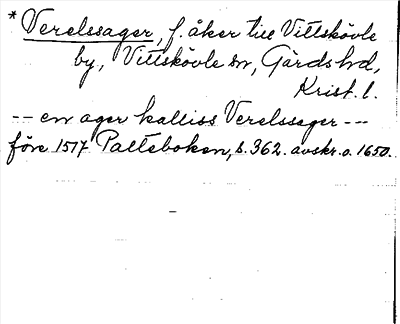 * Verelssager, f. åker till Vittskövle
by, Vittskövle sn, Gärds hd,
Krist. l.
-- en ager kalliss Verelssager ---
före 1517 Palteboken, s. 362. avskr. o. 1650.